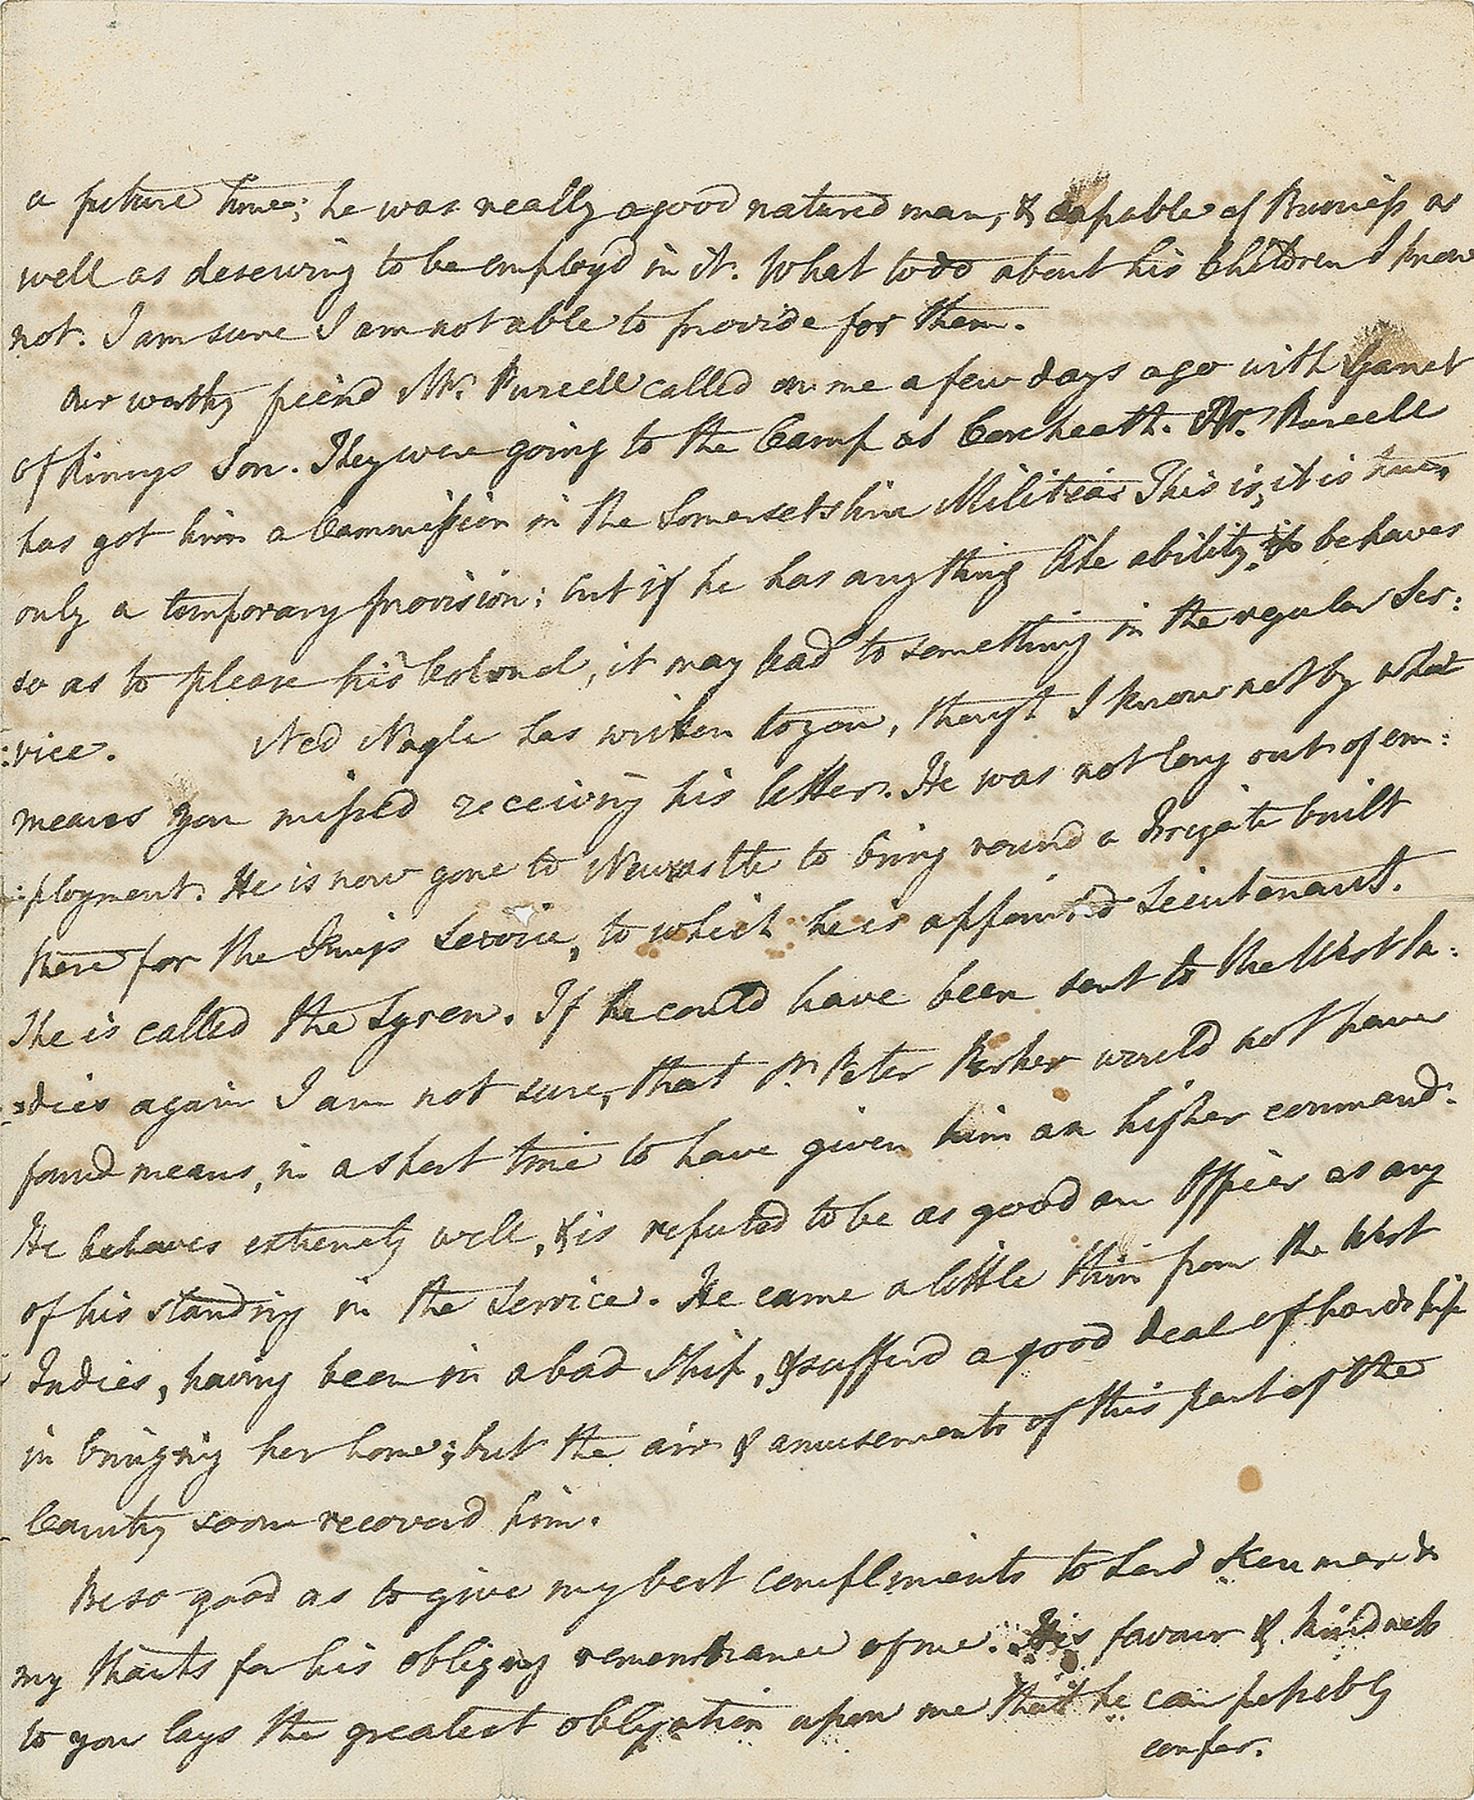 a future time; he was really a good natured man, & capable of Business as
well as deserving to be employd in it. What to do about his Children I know
not. I am sure I am not able to provide for them.
Our worthy friend Mr. Purcell called on me a few days ago with Garret
of Kinurys Son. They were going to the Camp at Coxheath. Mr. Purcell
has got him a Commission in the Somersetshire Militia. This is, it is true,
only a temporary provision: but if he has any thing like ability, & behaves
so as to please his Colonel, it may lead to something in the regular Ser:
:vice. Ned Nagle has written to you, though I know not by what
means you missed receiving his letter. He was not long out of em:
:ployment. He is now gone to Newcastle to bring round a Frigate built
there for the Kings Service, to which he is appointed Lieutenant.
She is called the Syren. If he could have been sent to the West In:
:dies again I am not sure, that Sr. Peter Parker would not have
found means, in a short time to have given him an higher command:
He behaves extremely well, & is reputed to be as good an Officer as any
of his standing in the Service. He came a little thin from the West
Indies, having been in a bad Ship, & sufferd a good deal of hardship
in bringing her home; but the air & amusements of this part of the
Country soon recoverd him.
Be so good as to give my best compliments to Lord Kenmare &
my thanks for his obliging remembrance of me. His favour & kindness
to you lays the greatest obligation upon me that he can possibly
confer.